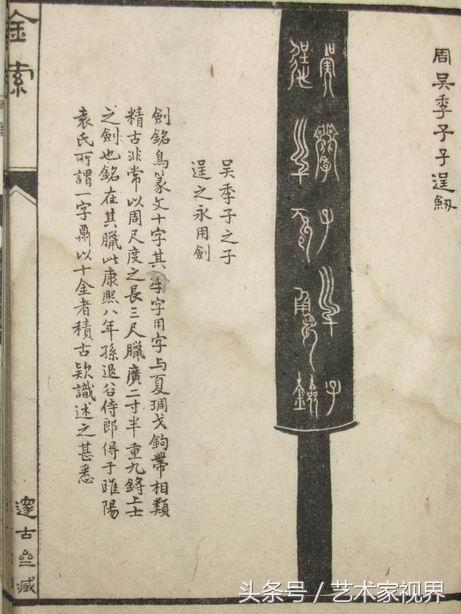 周吳季子子逞劒
吳季子之子
逞之永用劍
劍銘鳥篆文十字其季字用字與夏琱戈鉤帶相類
精古非常以周尺度之長三尺臘廣二寸半重九鋝上士
之劍也銘在其臘此康熙八年孫退谷侍郎得于睢陽
袁氏所謂一字以十金者積古欵識述之甚悉
金索
邃古亝藏
头条号 / 艺术家视界